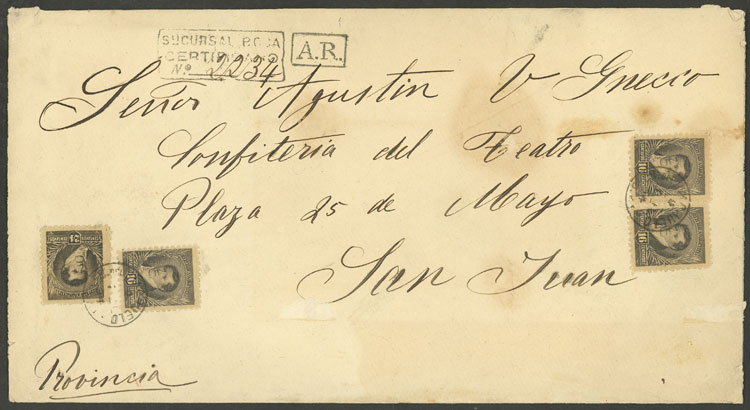 SUCURSAL BOCA
CERTIFICADO
Nº 2234
A.R.
Señor Agustin V Gnecco
Confiteria del Teatro
Plaza 25 de Mayo
San Juan
Provincia
16
16
16
24